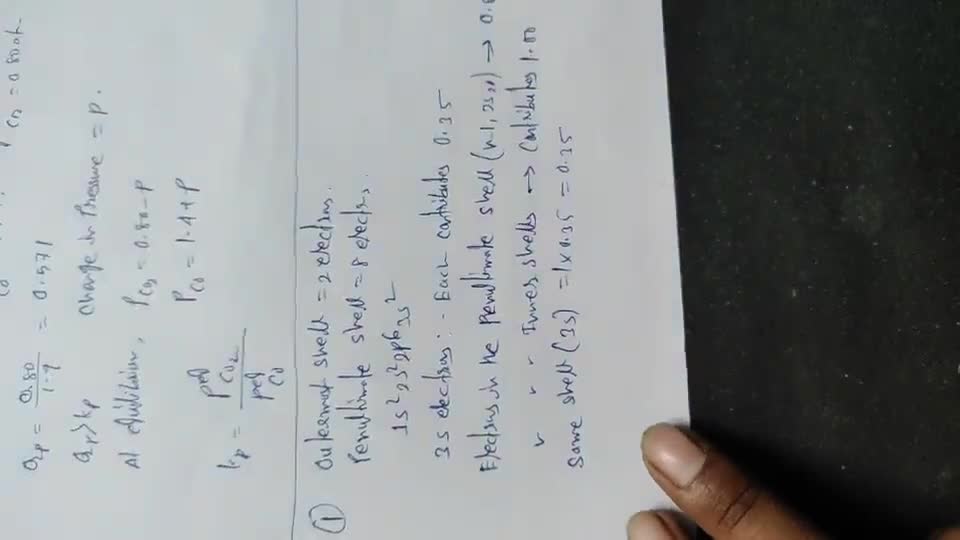 P CO = 0.80 atm
CO
Qp = 0.80 / 1.4 = 0.571
Qp > Kp Change in Pressure = P.
At equilibrium, PCO2 = 0.80 - P
PCO = 1.4 + P
kp = peq CO2 / peq CO
① Outermost shell = 2 electrons.
Penultimate shell = 8 electrs.
1s² 2s² 2p6 3s²
3s electrons :- Each contributes 0.35
Electrons in the Penultimate shell (n-1, 2s,p) → 0.8
" " " Inner shells → Contributes 1.00
Same shell (3s) = 1 x 0.35 = 0.35